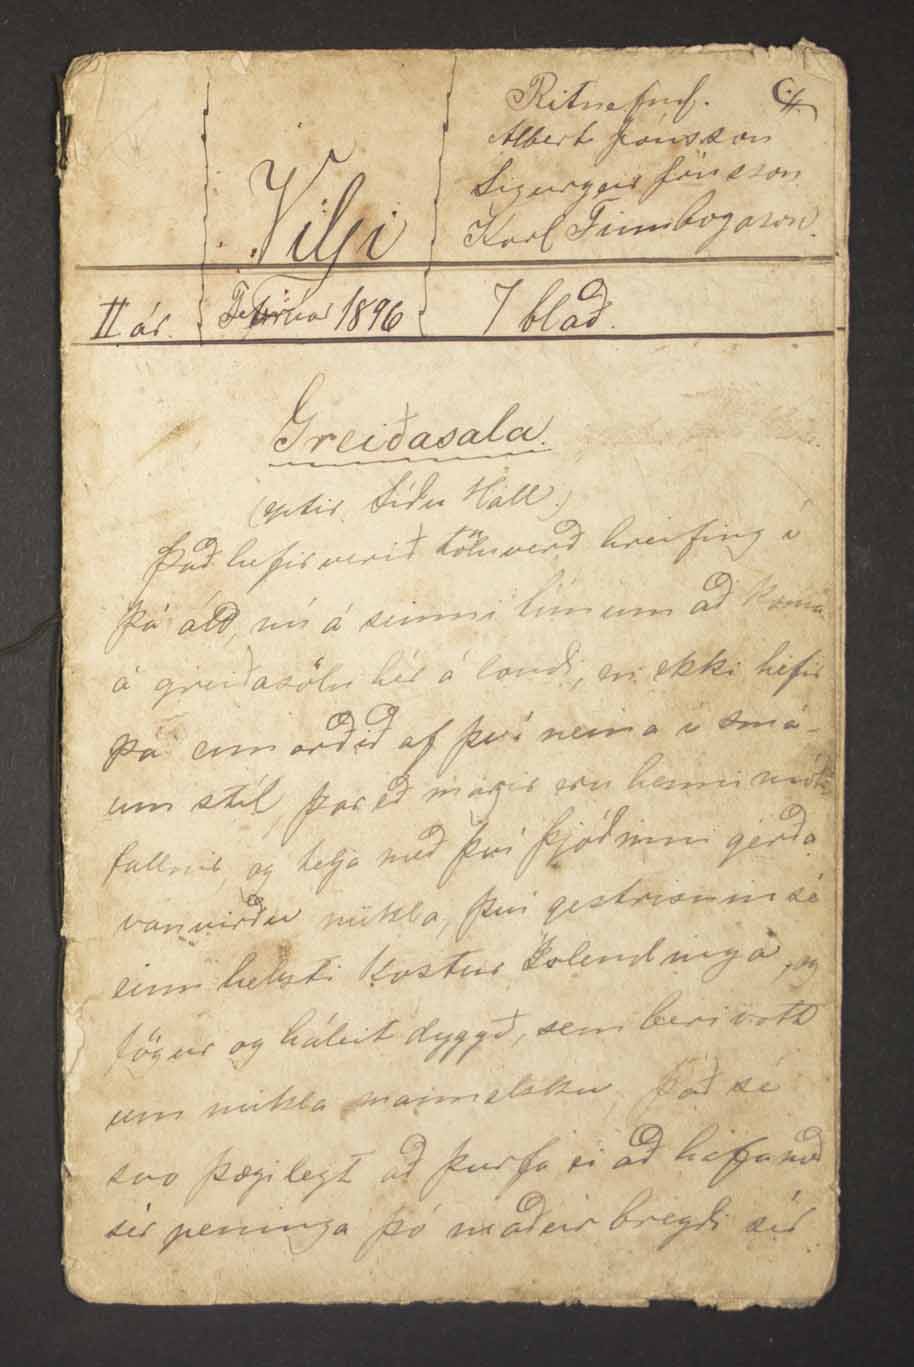 Ritnefnd.
Albert Jónsson
Sigurgeir Jónsson
Karl Finnbogason.
Vilji
II ár. Febrúar 1896 7 blað.
Greiðasala.
(eptir Síðu Hall)
Það hefir verið töluverð hreifing í
þá átt, nú á seinni tímum að koma
á greiðasölu hér á landi, en ekki hefir
þá enn orðið af því neina í smá-
um stíl, þareð margir eru henni mót
fallnir, og telja með því þjóðinni gerða
vanvirðu mikla, því gestrisnin sé
einn helsti kostur Íslendinga, og
fögur og háleit dyggð, sem beri vott
um mikla mannelsku. Það sé
svo þægilegt að þurfa ei að hafa með
sér peninga þó maður bregði sér